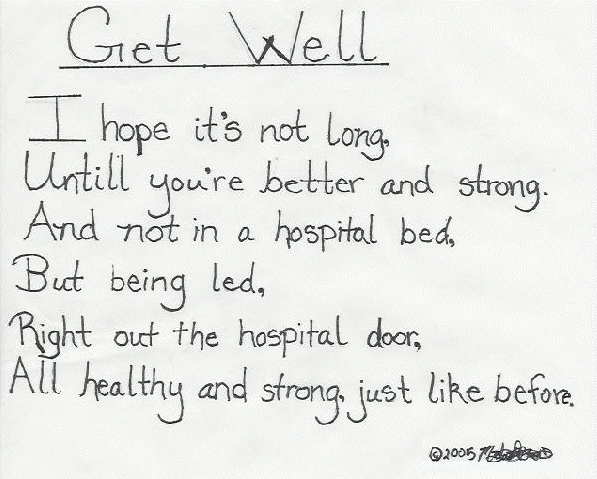 Get Well
I hope it's not long,
Untill you're better and strong.
And not in a hospital bed,
But being led,
Right out the hospital door,
All healthy and strong, just like before.
©2005